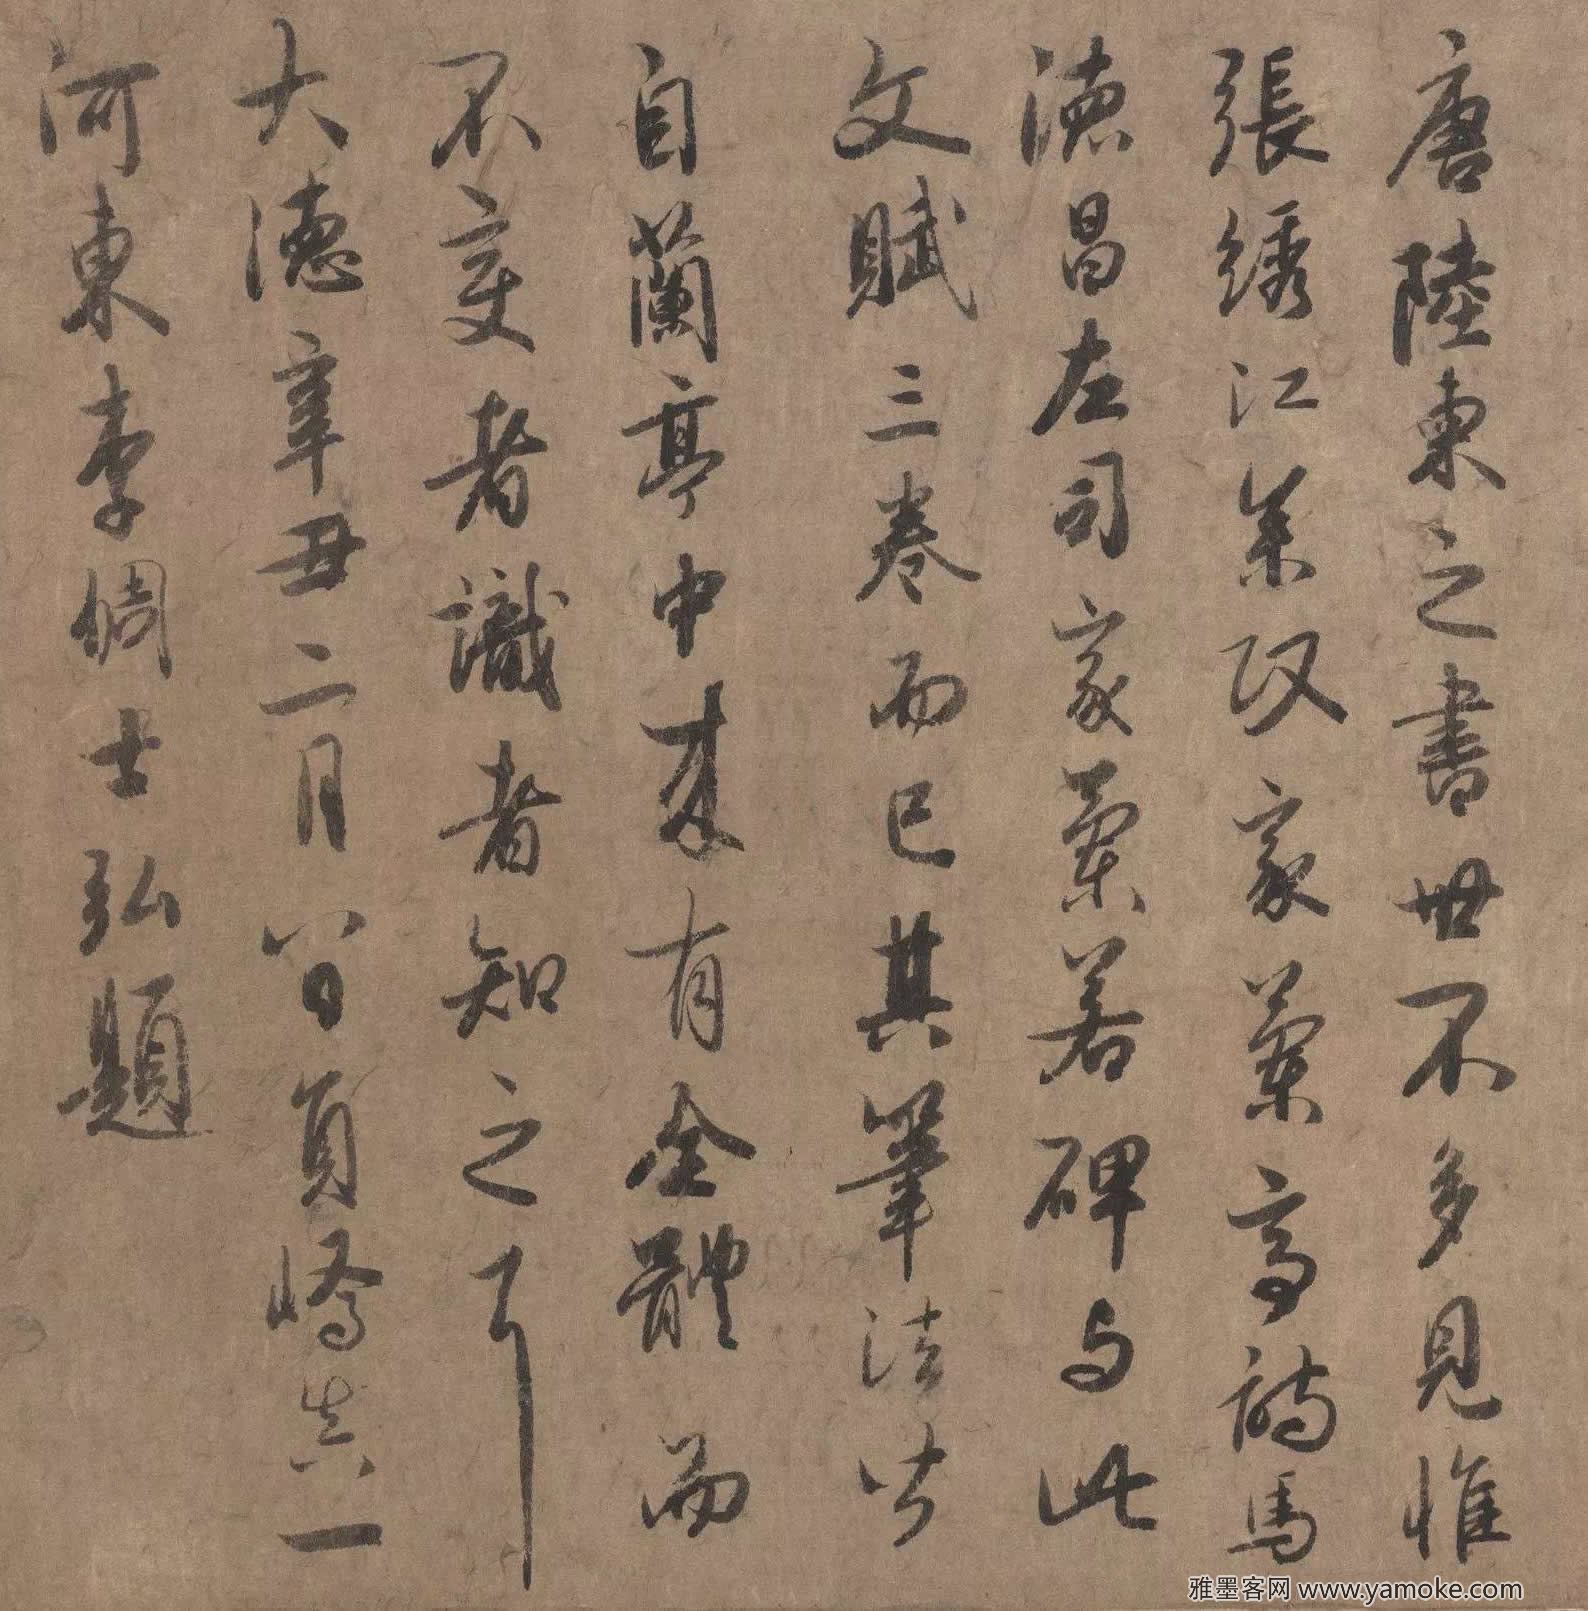 唐陸柬之書世不多見惟
張綉江叅政家蘭亭詩馬
德昌左司家蘭若碑与此
文賦三卷而已其筆法皆
自蘭亭中來有全體而
不變者識者知之耳
大德辛丑二月八日員嶠真一
河東李倜士弘題
雅墨客网 www.yamoke.com